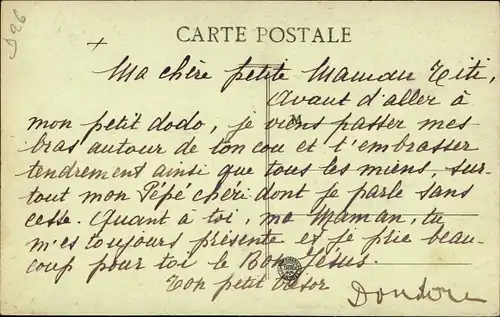 D26
CARTE POSTALE
Ma chère petite Maman Titi,
Avant d'aller à
mon petit dodo, je viens passer mes
bras autour de ton cou et t'embrasser
tendrement ainsi que tous les miens, sur-
tout mon Pépé chéri dont je parle sans
cesse. Quant à toi, ma Maman, tu
m'es toujours présente et je prie beau-
coup pour toi le Bon Jésus.
Ton petit trésor